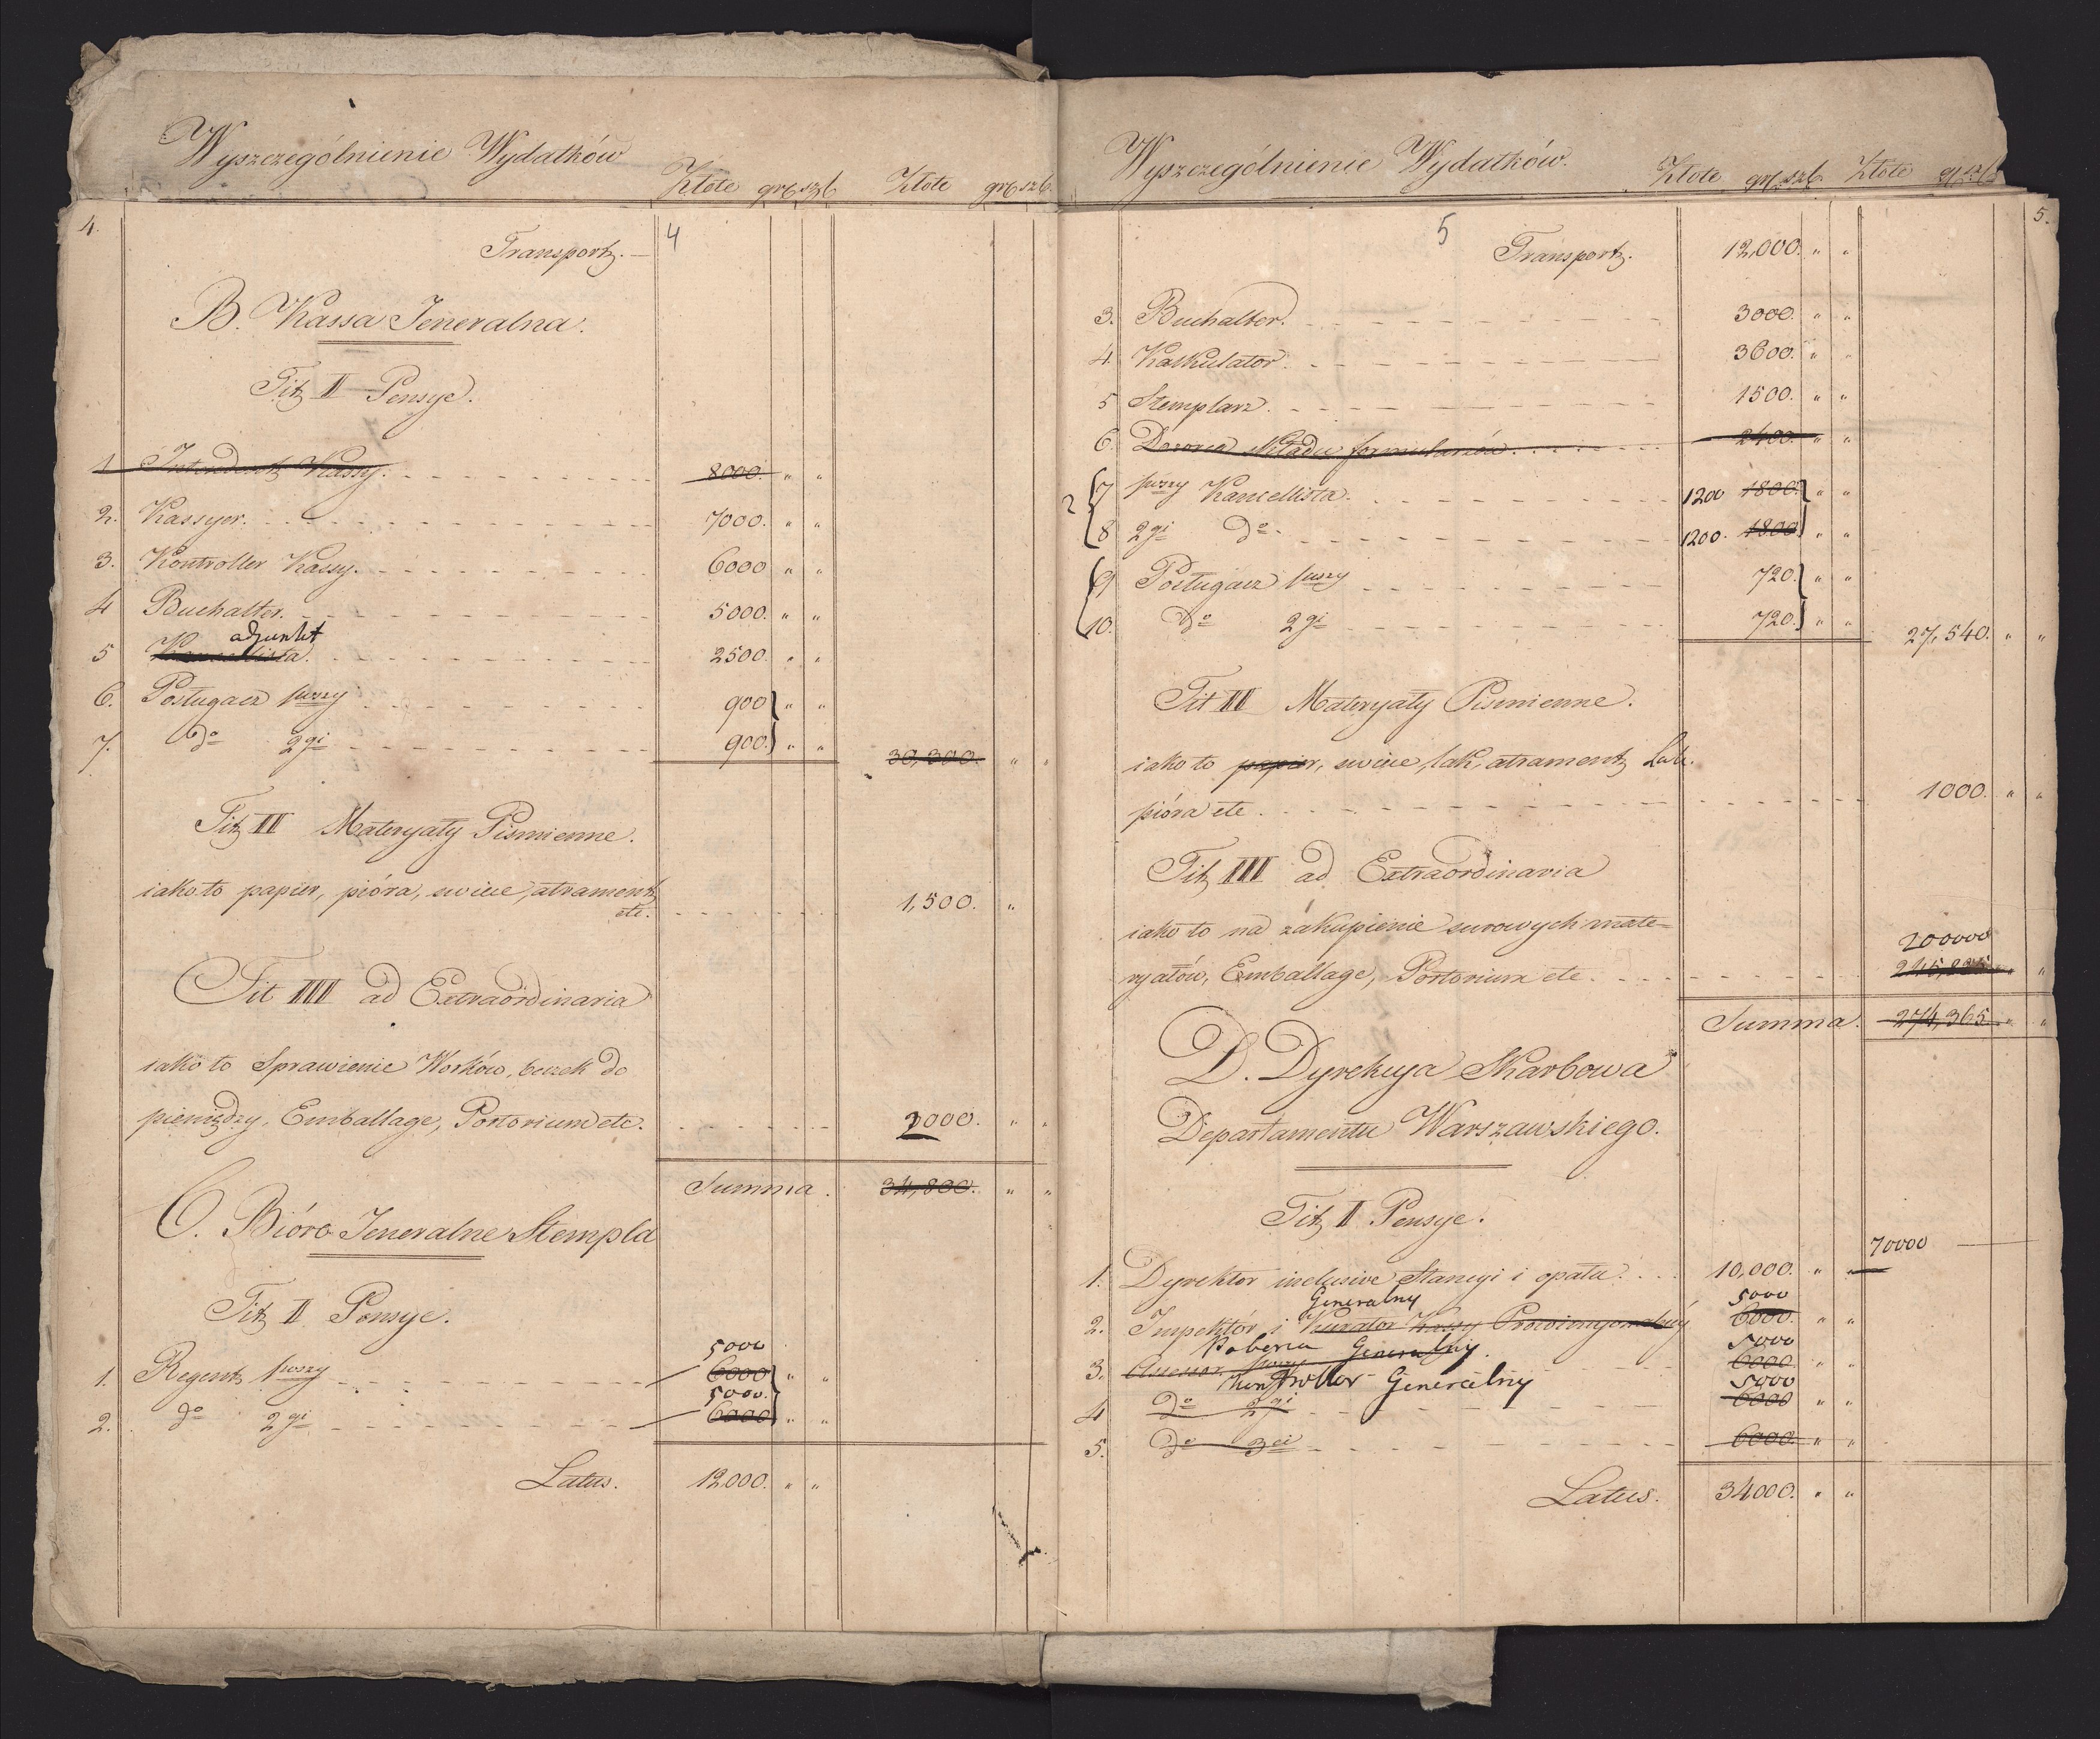 Wyszczególnienie Wydatków
Złote gr szl Złote gr szl
4. 4
Transport.
B. Kassa Jeneralna.
Tit I Pensye.
1 Intendent Kassy. 8000. " "
2. Kassyer. 7000. " "
3. Kontroller Kassy. 6000 " "
4 Buchalter. 5000. " "
adjunkt
5 Kancellista. 2500. " "
6. Posługacz 1wszy 900 " "
7. do 2gi 900. " " 30,300. " "
Tit II Materyały Piśmienne.
iako to papier, pióra, swiece, atrament
etc. 1,500. "
Tit III ad Extraordinaria
iako to Sprawienie Worków, beczek do
pieniędzy, Emballage, Portorium etc. 3000. " "
Summa. 34,800. " "
C. Bióro Jeneralne Stempla
Tit I Pensye.
5000
1. Regent 1wszy 6000 " "
5000.
2. do 2gi 6000 " "
Latus. 12000. " "
Wyszczególnienie Wydatków.
Złote gr szl. Złote gr szl
5 5.
Transport. 12,000. " "
3. Buchalter. 3000. " "
4. Kalkulator. 3600. " "
5 Stemplarz. 1500. " "
6. Dozorca składu formularzów. 2400. " "
2 7 1wszy Kancellista. 1200 1800. " "
8 2gi do. 1200. 1800 " "
9 Posługacz 1wszy 720. " "
10. do 2gi 720. " " 27,540. " "
Tit II Materyały Piśmienne.
iako to papier, swiece, lak, atrament,
pióra etc. 1000. " "
Tit III ad Extraordinaria
iako to na zakupienie surowych mate=
200000
ryałów, Emballage, Portorium etc. "
Summa. 274,365. " "
D. Dyrekcya Skarbowa
Departamentu Warszawskiego.
Tit I Pensye.
70000
1. Dyrektor inclusive Stancyi i opału. 10,000. " "
Generalny 5000
2. Inspektór i Kurator Kassy Prowincyonalnéy 6000. " "
Poborca Generalny. 5000
3. Assessor 1wszy 6000. " "
Kontroller Generalny 5000
4 do 2gi 6000 " "
5. do 3ci 6000. " "
Latus. 34000. " "